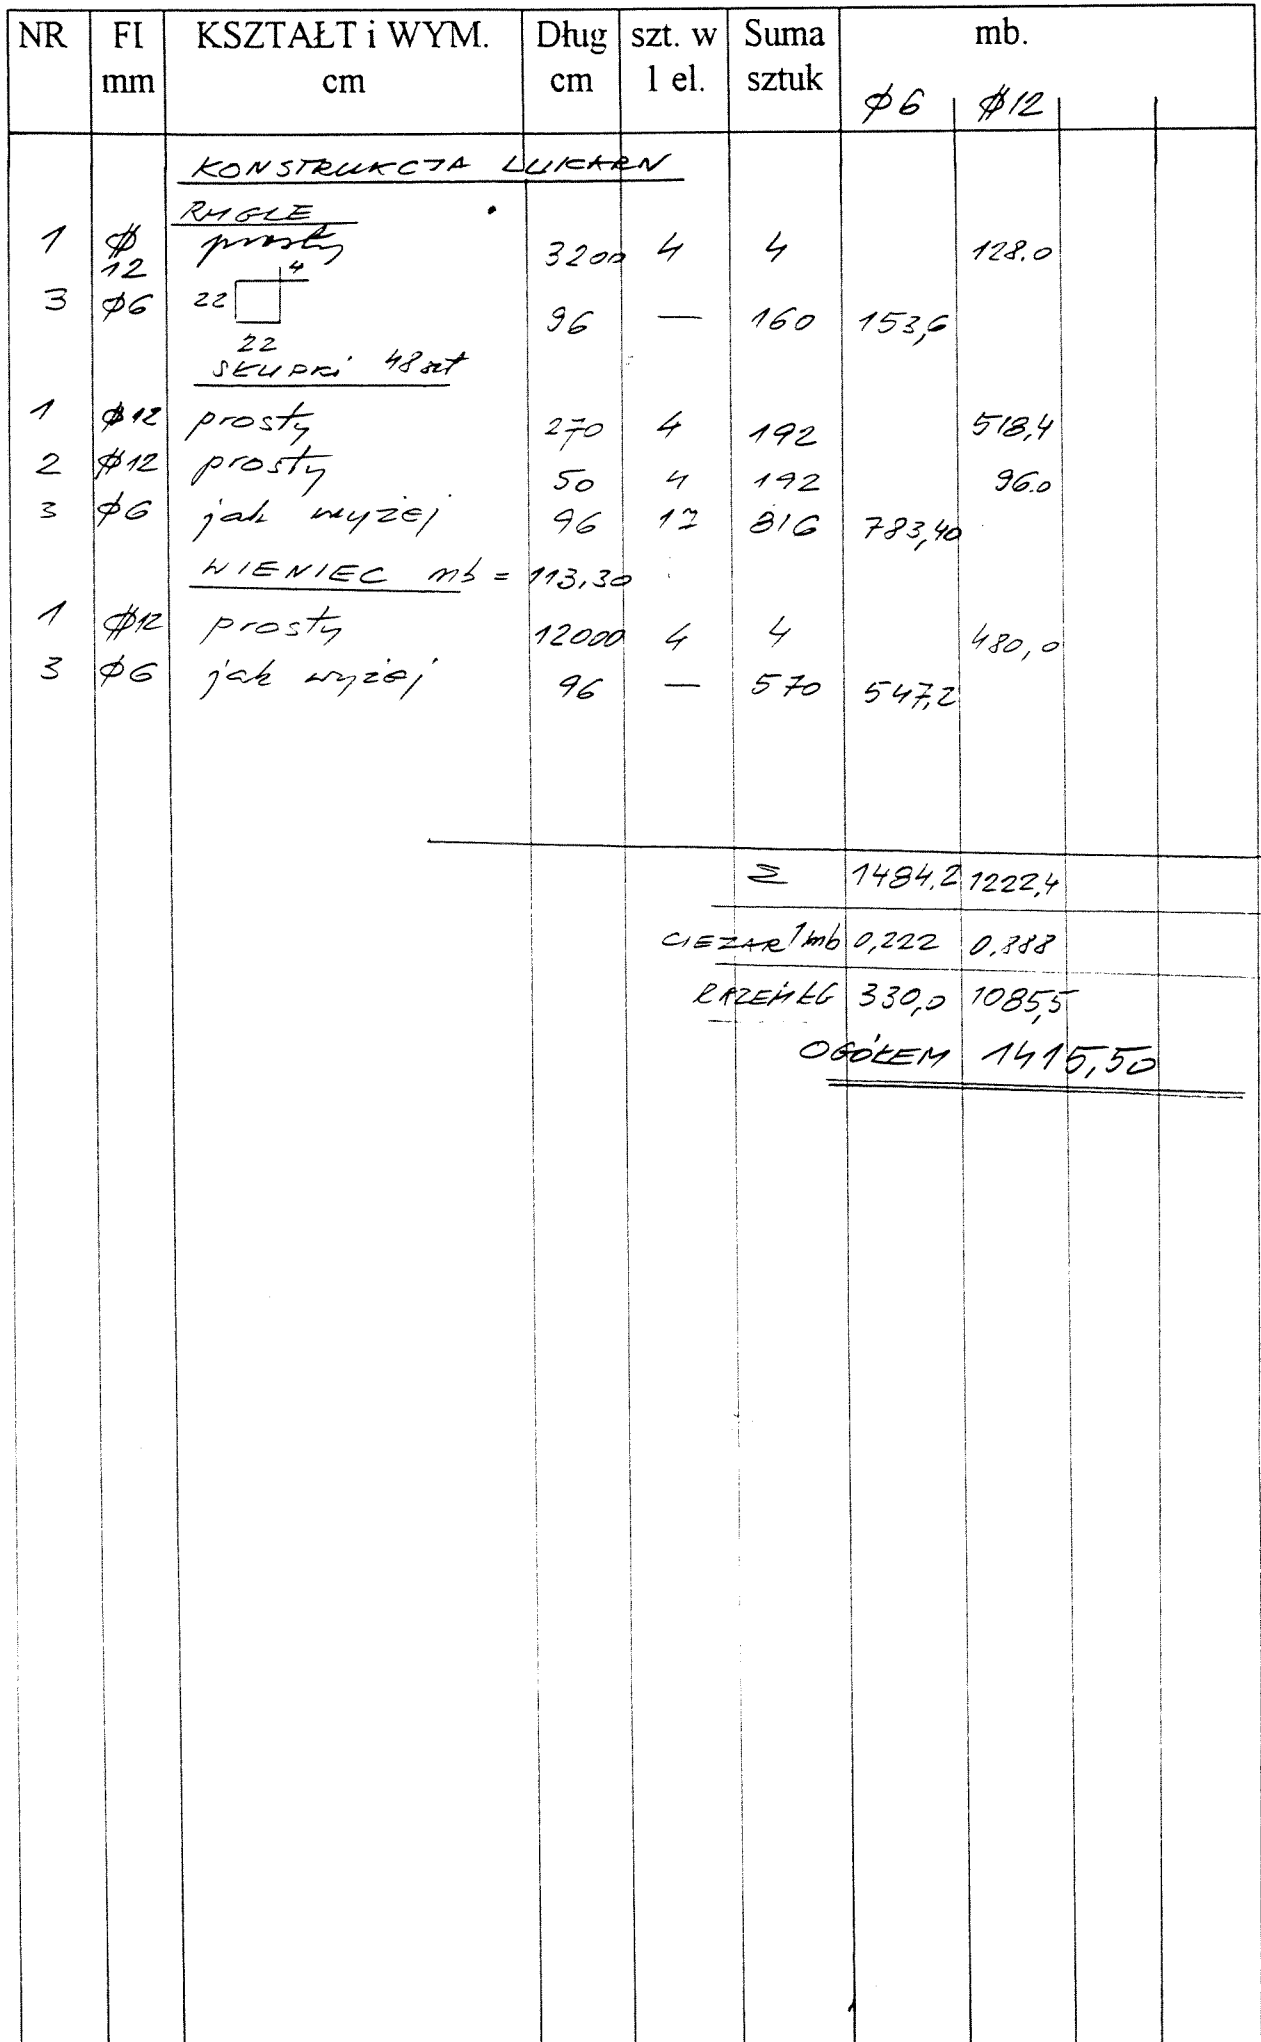 NR FI KSZTAŁT i WYM. Dług szt. w Suma mb.
mm cm cm 1 el. sztuk
ϕ6 #12
KONSTRUKCJA LUKARN
RYGLE
1 # 12 prosty 3200 4 4 128.0
4
3 ϕ6 22 96 — 160 153,6
22
SŁUPKI 48 szt
1 #12 prosty 270 4 192 518,4
2 #12 prosty 50 4 192 96.0
3 ϕ6 jak wyżej 96 17 816 783,40
WIENIEC mb = 113,30
1 #12 prosty 12000 4 4 480,0
3 ϕ6 jak wyżej 96 — 570 547,2
Σ 1484.2 1222,4
CIEZAR 1mb 0,222 0.888
RAZEM KG 330,0 1085,5
OGÓŁEM 1415,50